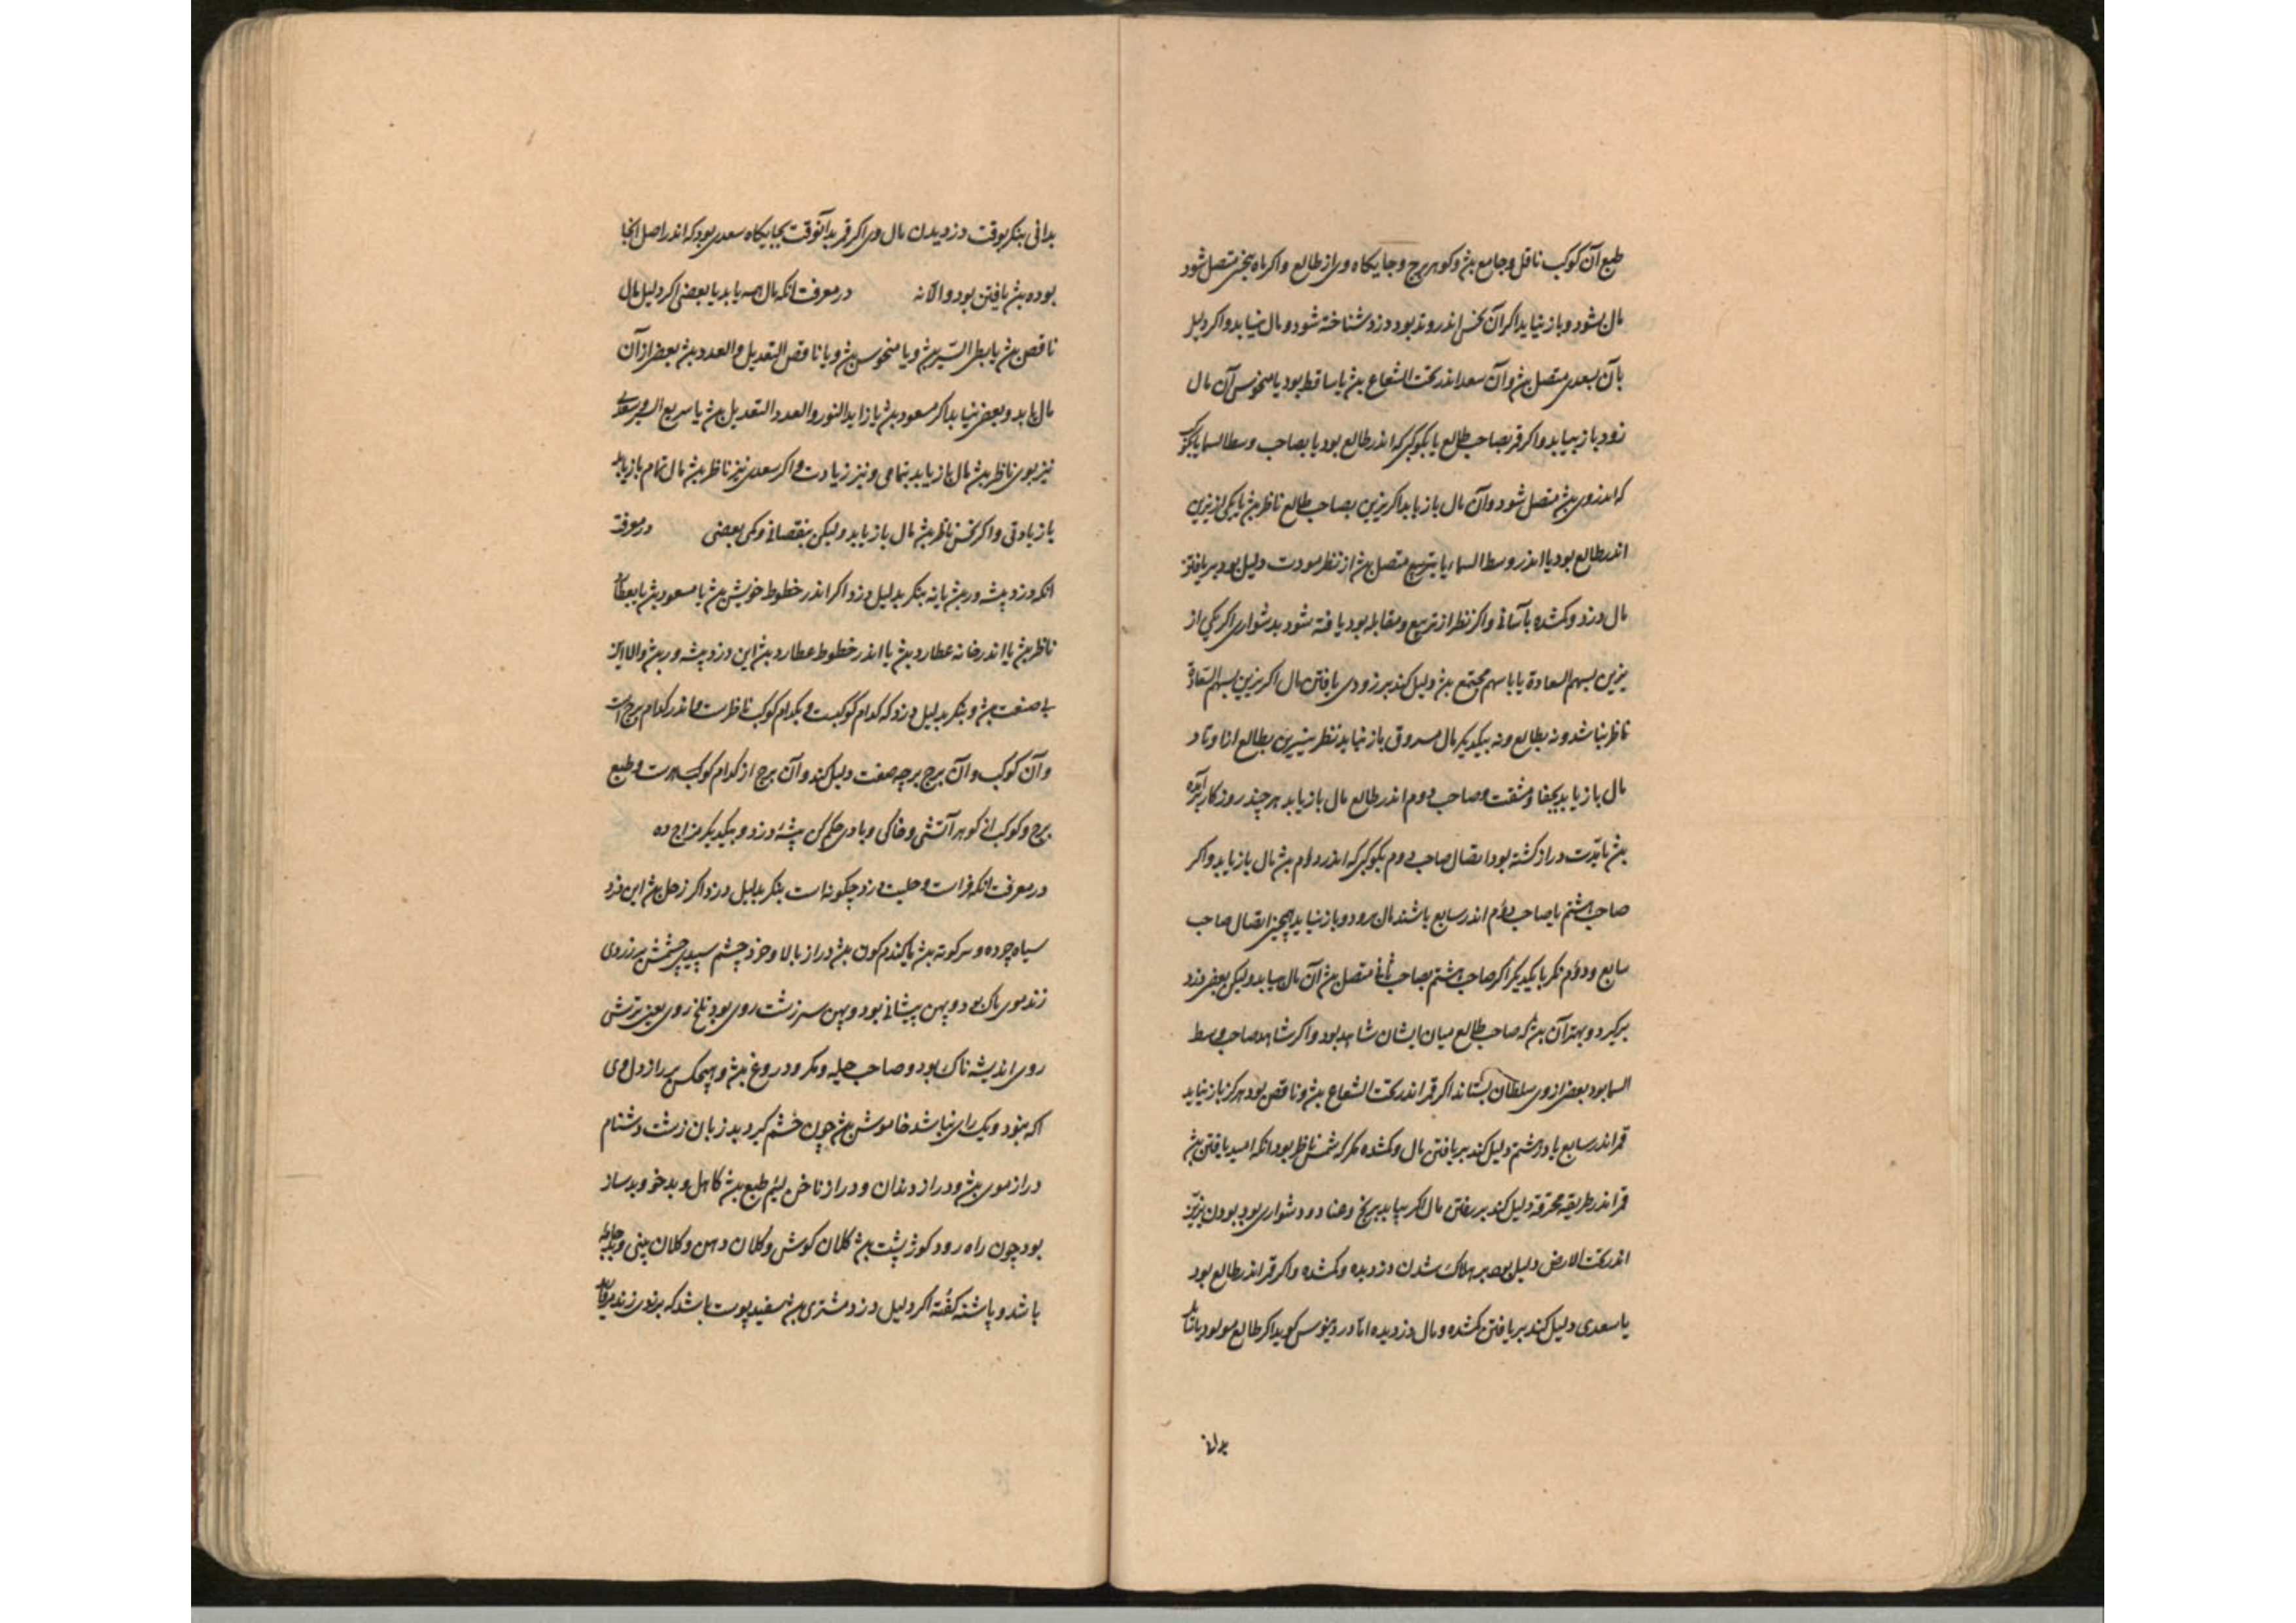 طبع آن کوکب ناقل و جامع بش و کوهر برج و جایکاه وی از طالع و اکر ماه بنحس متصل شود
مال بشود و باز نیابد اکر آن نحس اندر وتد بود دزد شناخته شود و مال نیابد و اکر دلیل
بآن بسعدی متصل بش و آن سعد اندر تحت الشعاع بش یا ساقط بود یا منحوس آن مال
زود باز بیابد و اکر قمر بصاحب طالع یا بکوکبی که اندر طالع بود یا بصاحب وسط السما یا بکوکب
که اندر وی بش متصل شود و آن مال باز یابد اکر نیرین بصاحب طالع ناظر بش یا یکی از نیرین
اندر طالع بود یا اندر وسط السما یا بتربیع متصل بش از نظر مودت دلیل بود بر یافتن
مال دزد و کمشده بآسانی و اکر نظر از تربیع و مقابله بود یافته شود بدشواری اکر یکی از
نیرین بسهم السعادة یا با سهم مجتمع بش دلیل کند بر زودی یافتن مال اکر نیرین بسهم السعادة
ناظر نباشد و نه بطالع و نه بیکدیکر مال مسروق باز نیابد نظر نیرین بطالع از اوتاد
مال باز یابد بجفا و مشقت و صاحب دوم اندر طالع مال باز یابد هر چند روزکار برآمده
بش تا مدت دراز کشته بود اتصال صاحب دوم بکوکبی که اندر دوم بش مال باز یابد و اکر
صاحب هشتم یا صاحب دوم اندر سابع باشند مال برود و باز نیابد همچنین اتصال صاحب
سابع و دوم مکر با یکدیکر اکر صاحب هشتم بصاحب ثانی متصل بش آن مال بیابد ولیکن بعضی دزد
برکیرد و بهتر آن بش که صاحب طالع میان ایشان شاهد بود و اکر شاهد صاحب وسط
السما بود بعضی از وی سلطان بستاند اکر قمر اندر تحت الشعاع بش و ناقص بود هرکز باز نیابد
قمر اندر سابع یا در هشتم دلیل کند بر یافتن مال و کمشده مکر که شمس ناظر بود انکه امید یافتن بش
قمر اندر طریقه محترقه دلیل کند بر رفتن مال اکر بیابد برنج و عنا و دشواری بود بودن نیرین
اندر تحت الارض دلیل بود بر هلاک شدن دزدیده و کمشده و اکر قمر اندر طالع بود
یا سعدی دلیل کند بر یافتن کمشده و مال دزدیده اما دروثیوس کوید اکر طالع مولود
بدانی
بدانی بنکر بوقت دزدیدن مال وی اکر قمر بدآنوقت بجایکاه سعدی بود که اندر اصل انجا
بوده بش یافتن بود والا نه در معرفت انکه مال همه یابد یا بعضی اکر دلیل مال
ناقص بش یا بطی السیر بش و یا منحوس بش و یا ناقص التعدیل و العدد بش بعضی از آن
مال یابد و بعضی نیابد اکر مسعود بش یا زاید النور و العدد و التعدیل بش یا سریع السیر و سعدی
نیز بوی ناظر بش مال باز یابد بتمامی و نیز زیادت و اکر سعدی نیز ناظر بش مال تمام باز یابد
یا زیادتی و اکر نحس ناظر بش مال باز یابد ولیکن بنقصانی و کمی بعضی در معرفت
انکه دزد پیشه ور بش یا نه بنکر بدلیل دزد اکر اندر خطوط خویش بش یا مسعود بش یا بعطارد
ناظر بش یا اندر خانه عطارد بش یا اندر خطوط عطارد بش این دزد پیشه ور بش والا این
بی صنعت بش و بنکر بدلیل دزد که کدام کوکبست و بکدام کوکب ناظرست و اندر کدام برج است
و آن کوکب و آن برج بر چه صفت دلیل کند و آن برج از کدام کوکب است و طبع
برج و کوکب از کوهر آتشی و خاکی و بادی حکم کن پیشهٔ دزد و بیکدیکر مزاج ده
در معرفت انکه فراست و حلیت دزد چکونه است بنکر بدلیل دزد اکر زحل بش این دزد
سیاه چرده و سرکوته بش یا کندم کون بش دراز بالا و خرد چشم سپیدی چشمش بزردی
زند موی ناک بود و پهن پیشانی بود و پهن سر زشت روی بود تلخ روی یعنی ترش
روی اندیشه ناک بود و صاحب حیله و مکر و دروغ بش و هیچکس بر راز دل وی
اکه نبود و یک رای نباشد خاموش بش چون خشم کیرد بد زبان زشت دشنام
دراز موی بش و دراز دندان و دراز ناخن لئیم طبع بش کاهل و بدخو و بدساز
بود چون راه رود کوژ پشت بش کلان کوش و کلان دهن و کلان بینی و بد جامه
باشد و پاشنه کفته اکر دلیل دزد مشتری بش سفید پوست باشد که بزردی زند